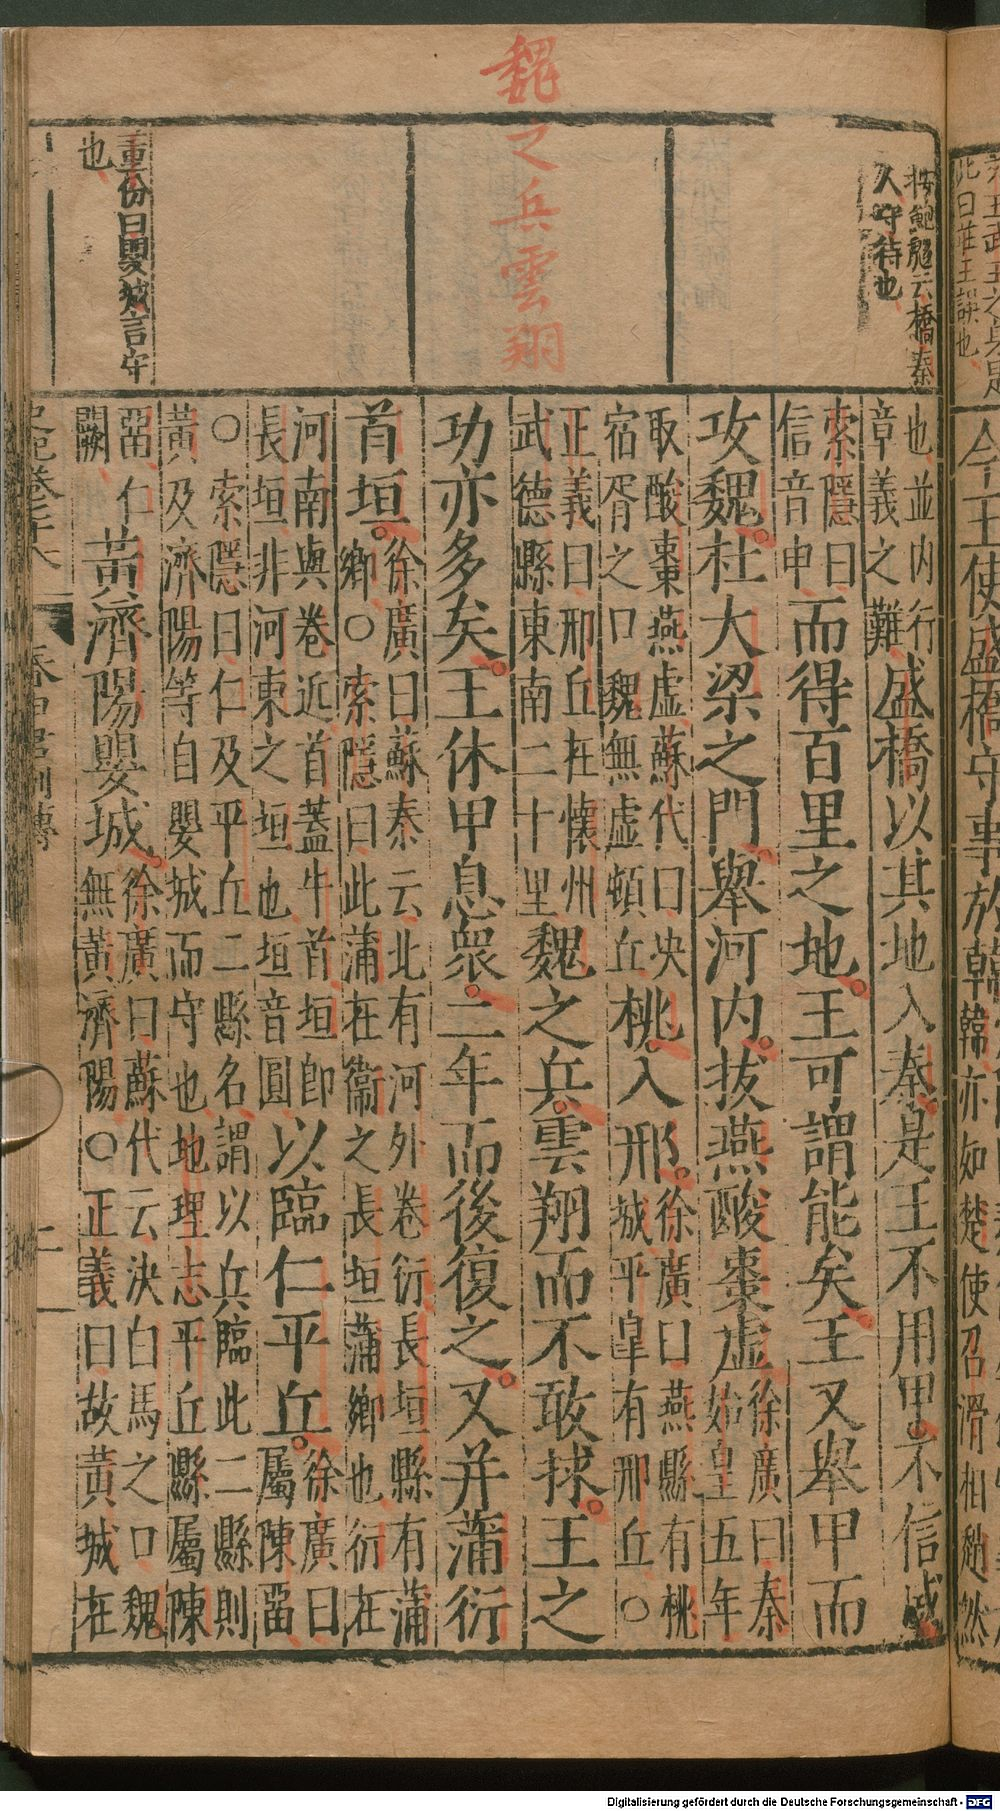 魏之兵雲翔
此曰莊王誤也
今王使盛橋守事於韓韓亦如楚使召滑相趙然
按鮑彪云橋秦
人守待也
董份曰嬰城言守
也
也並内行
章義之難
盛橋以其地入秦是王不用甲不信威
索隱曰
信音申
而得百里之地。王可謂能矣王又舉甲而
攻魏。杜大梁之門。舉河内。拔燕酸棗虛
徐廣曰秦
始皇五年
取酸棗燕虛蘇代曰决
宿胥之口魏無虛頓丘
桃。入邢。
徐廣曰燕縣有桃
城平皐有邢丘○
正義曰邢丘在懷州
武德縣東南二十里
魏之兵。雲翔而不敢捄。王之
功亦多矣。王休甲息衆。二年而後復之。又并蒲衍
首垣。
徐廣曰蘇秦云北有河外卷衍長垣縣有蒲
鄉○索隱曰此蒲在衞之長垣蒲鄉也衍在
河南與卷近首蓋牛首垣即
長垣非河東之垣也垣音圓
以臨仁平丘。
徐廣曰
屬陳畱
○索隱曰仁及平丘二縣名謂以兵臨此二縣則
黃及濟陽等自嬰城而守也地理志平丘縣屬陳
畱仁
闕
黃濟陽嬰城。
徐廣曰蘇代云決白馬之口魏
無黃濟陽○正義曰故黃城在
史記卷七十八
春申君列傳
Digitalisierung gefördert durch die Deutsche Forschungsgemeinschaft - DFG